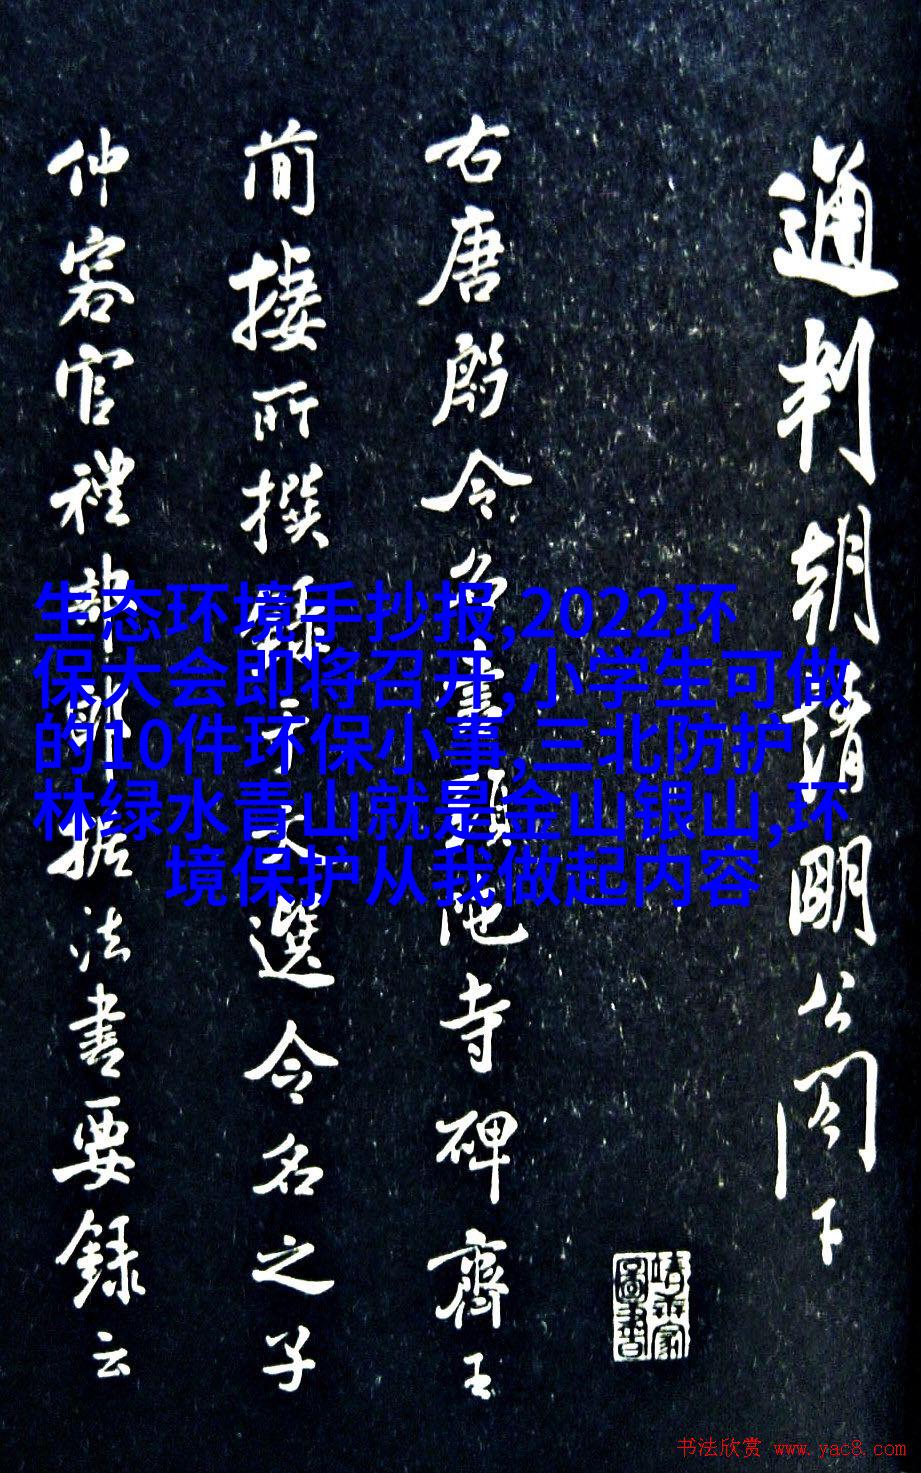 通判朝請明公閣下
右唐殷令名書頭陁寺碑齊王
簡捿所撰
選令名之子
仲容官禮部郎
據法書要録云
生态环境手抄报,2022环
保大会即将召开,小学生可做
的10件环保小事,三北防护
林绿水青山就是金山银山,环
境保护从我做起内容
书法欣赏 www.yac8.com